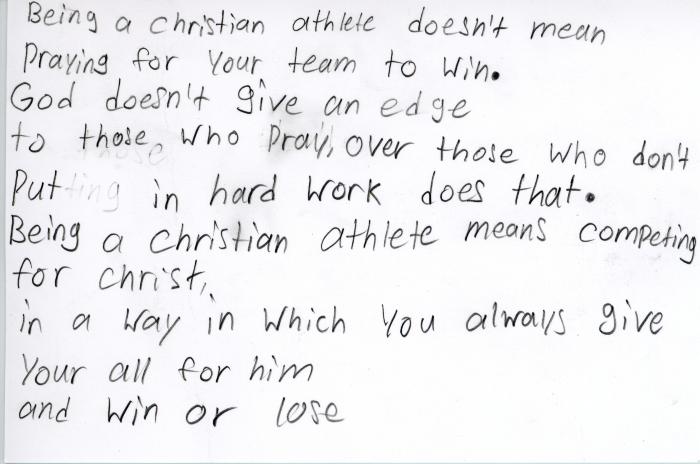 Being a christian athlete doesn't mean
Praying for Your team to win.
God doesn't give an edge
to those, who Pray, over those who don't
Putting in hard work does that.
Being a christian athlete means competing
for christ,
in a way in which You always give
Your all for him
and win or lose